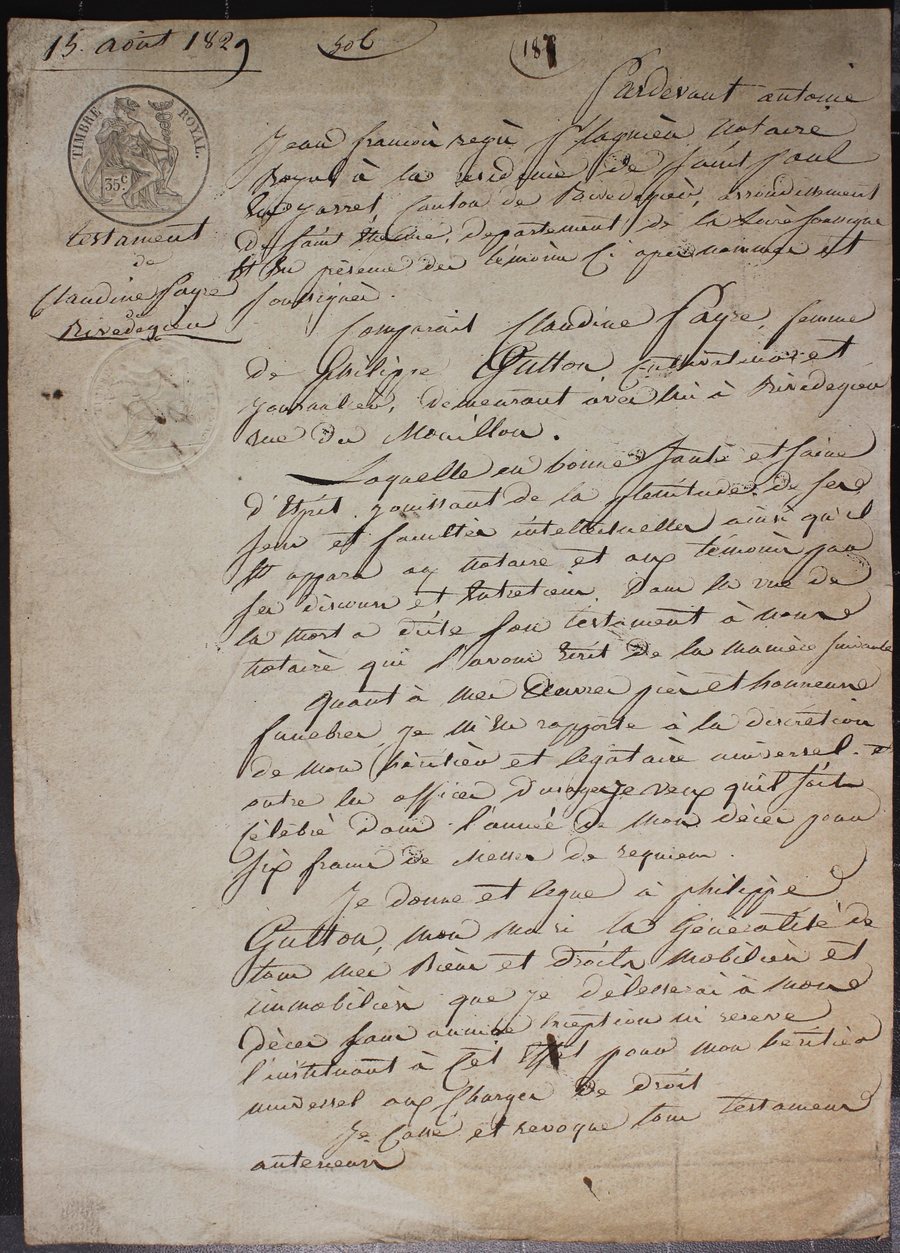 15. août 1829
506
187
TIMBRE ROYAL.
35 c.
testament
de
Claudine Payre
de
Rivedegier
Pardevant antoine
Jean françois regis flaguien notaire
Royal à la residence de Saint Paul
En Jarret Canton de Rivedegier, arrondissement
de Saint Etienne, departement de la Loire soussigné
Et En présence des témoins Ci après nommés et
soussignés.
Comparait Claudine Payre, femme
de philippe Gutton Cultivateur et
journalier, demeurant avec lui à Rivedegier
rue du Mouillon.
Laquelle en bonne santé et saine
d'Esprit jouissant de la plenitude de ses
sens et facultés intellectuelles ainsi qu'il
Est apparu au notaire et aux témoins par
ses discours et Entretiens. Dans la vue de
la mort a dicté son testament à nous
notaire qui l'avons Ecrit de la manière suivante
Quant à mes Oeuvres pies et honneurs
funebres je m'En rapporte à la discrétion
de mon héritier et legataire universel. et
outre les offices d'usages je veux qu'il soit
Célébré dans l'année de mon décès pour
six francs de messes de requiem.
Je donne et legue à philippe
Gutton, mon mari la Généralité de
tous mes Biens et droits mobiliers et
immobiliers que je délesserai à mon
décès sans aucune Exception ni reserve
l'instituant à Cet Effet pour mon héritier
universel aux Charges de droit
Je Casse et revoque tous testament
anterieurs